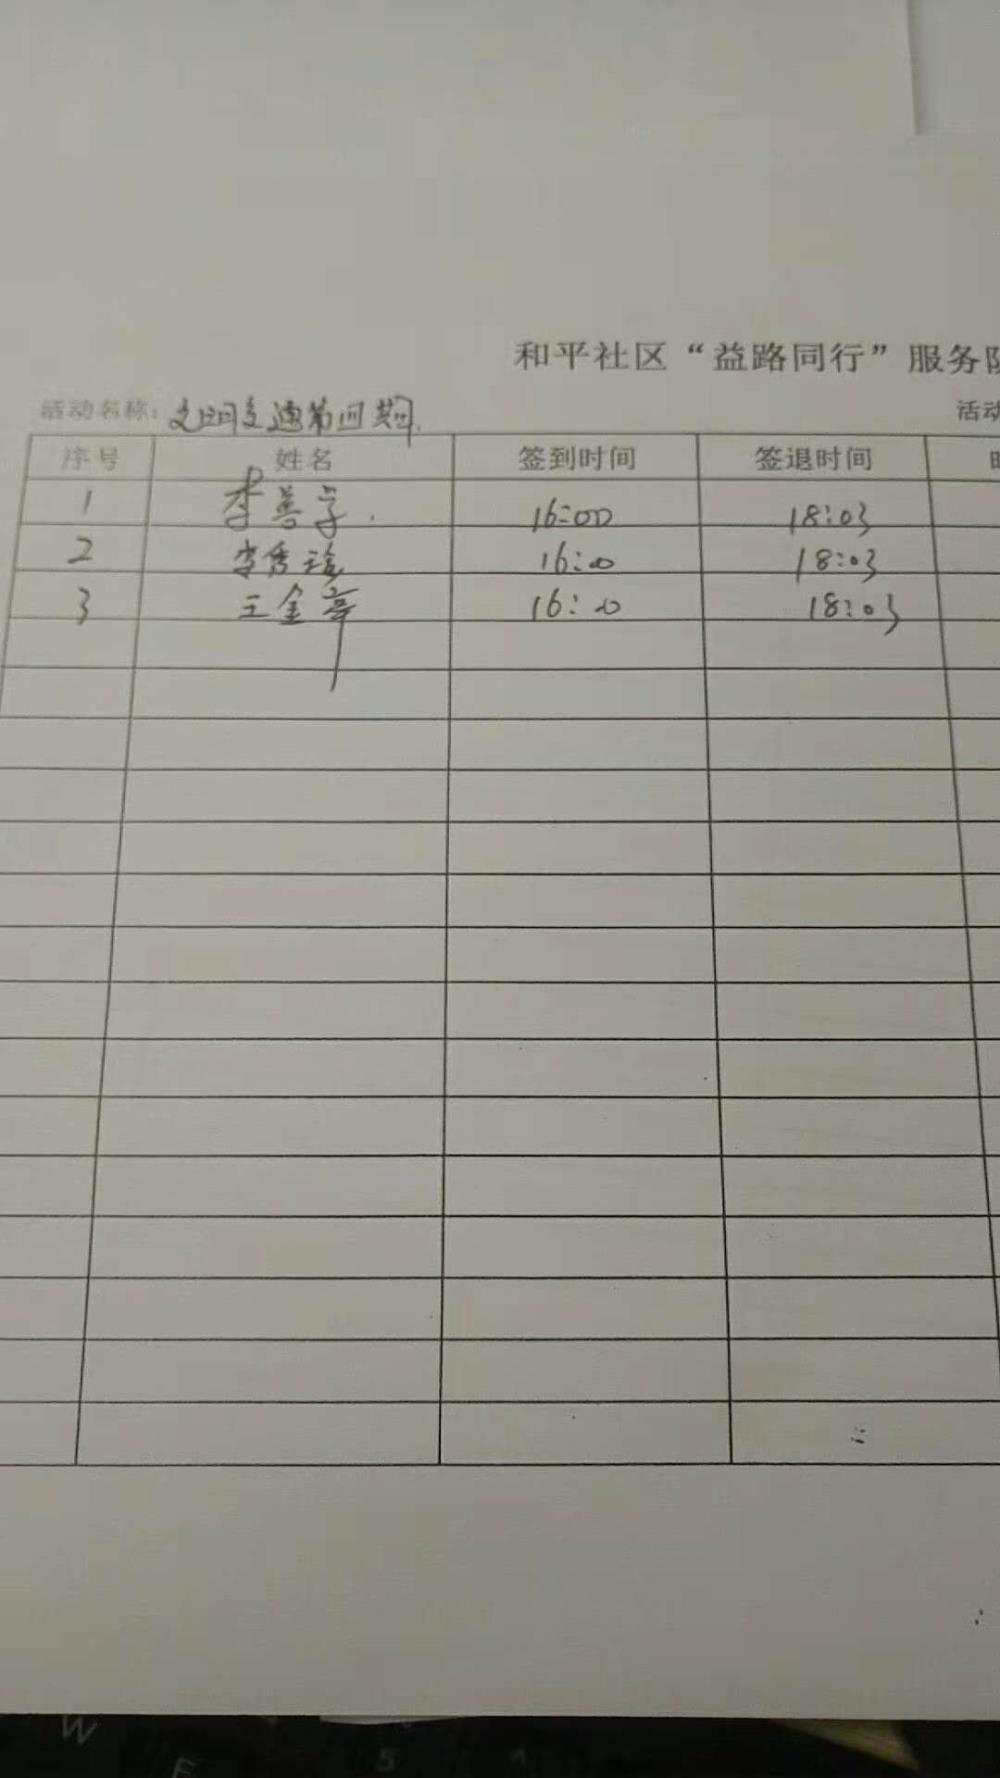 和平社区“益路同行”服务队
活动名称：文明交通第四期. 活动
序号 姓名 签到时间 签退时间 时
1 李善学. 16:00 18:03
2 李秀瑜 16:00 18:03
3 王金章 16:00 18:03
W
E 5